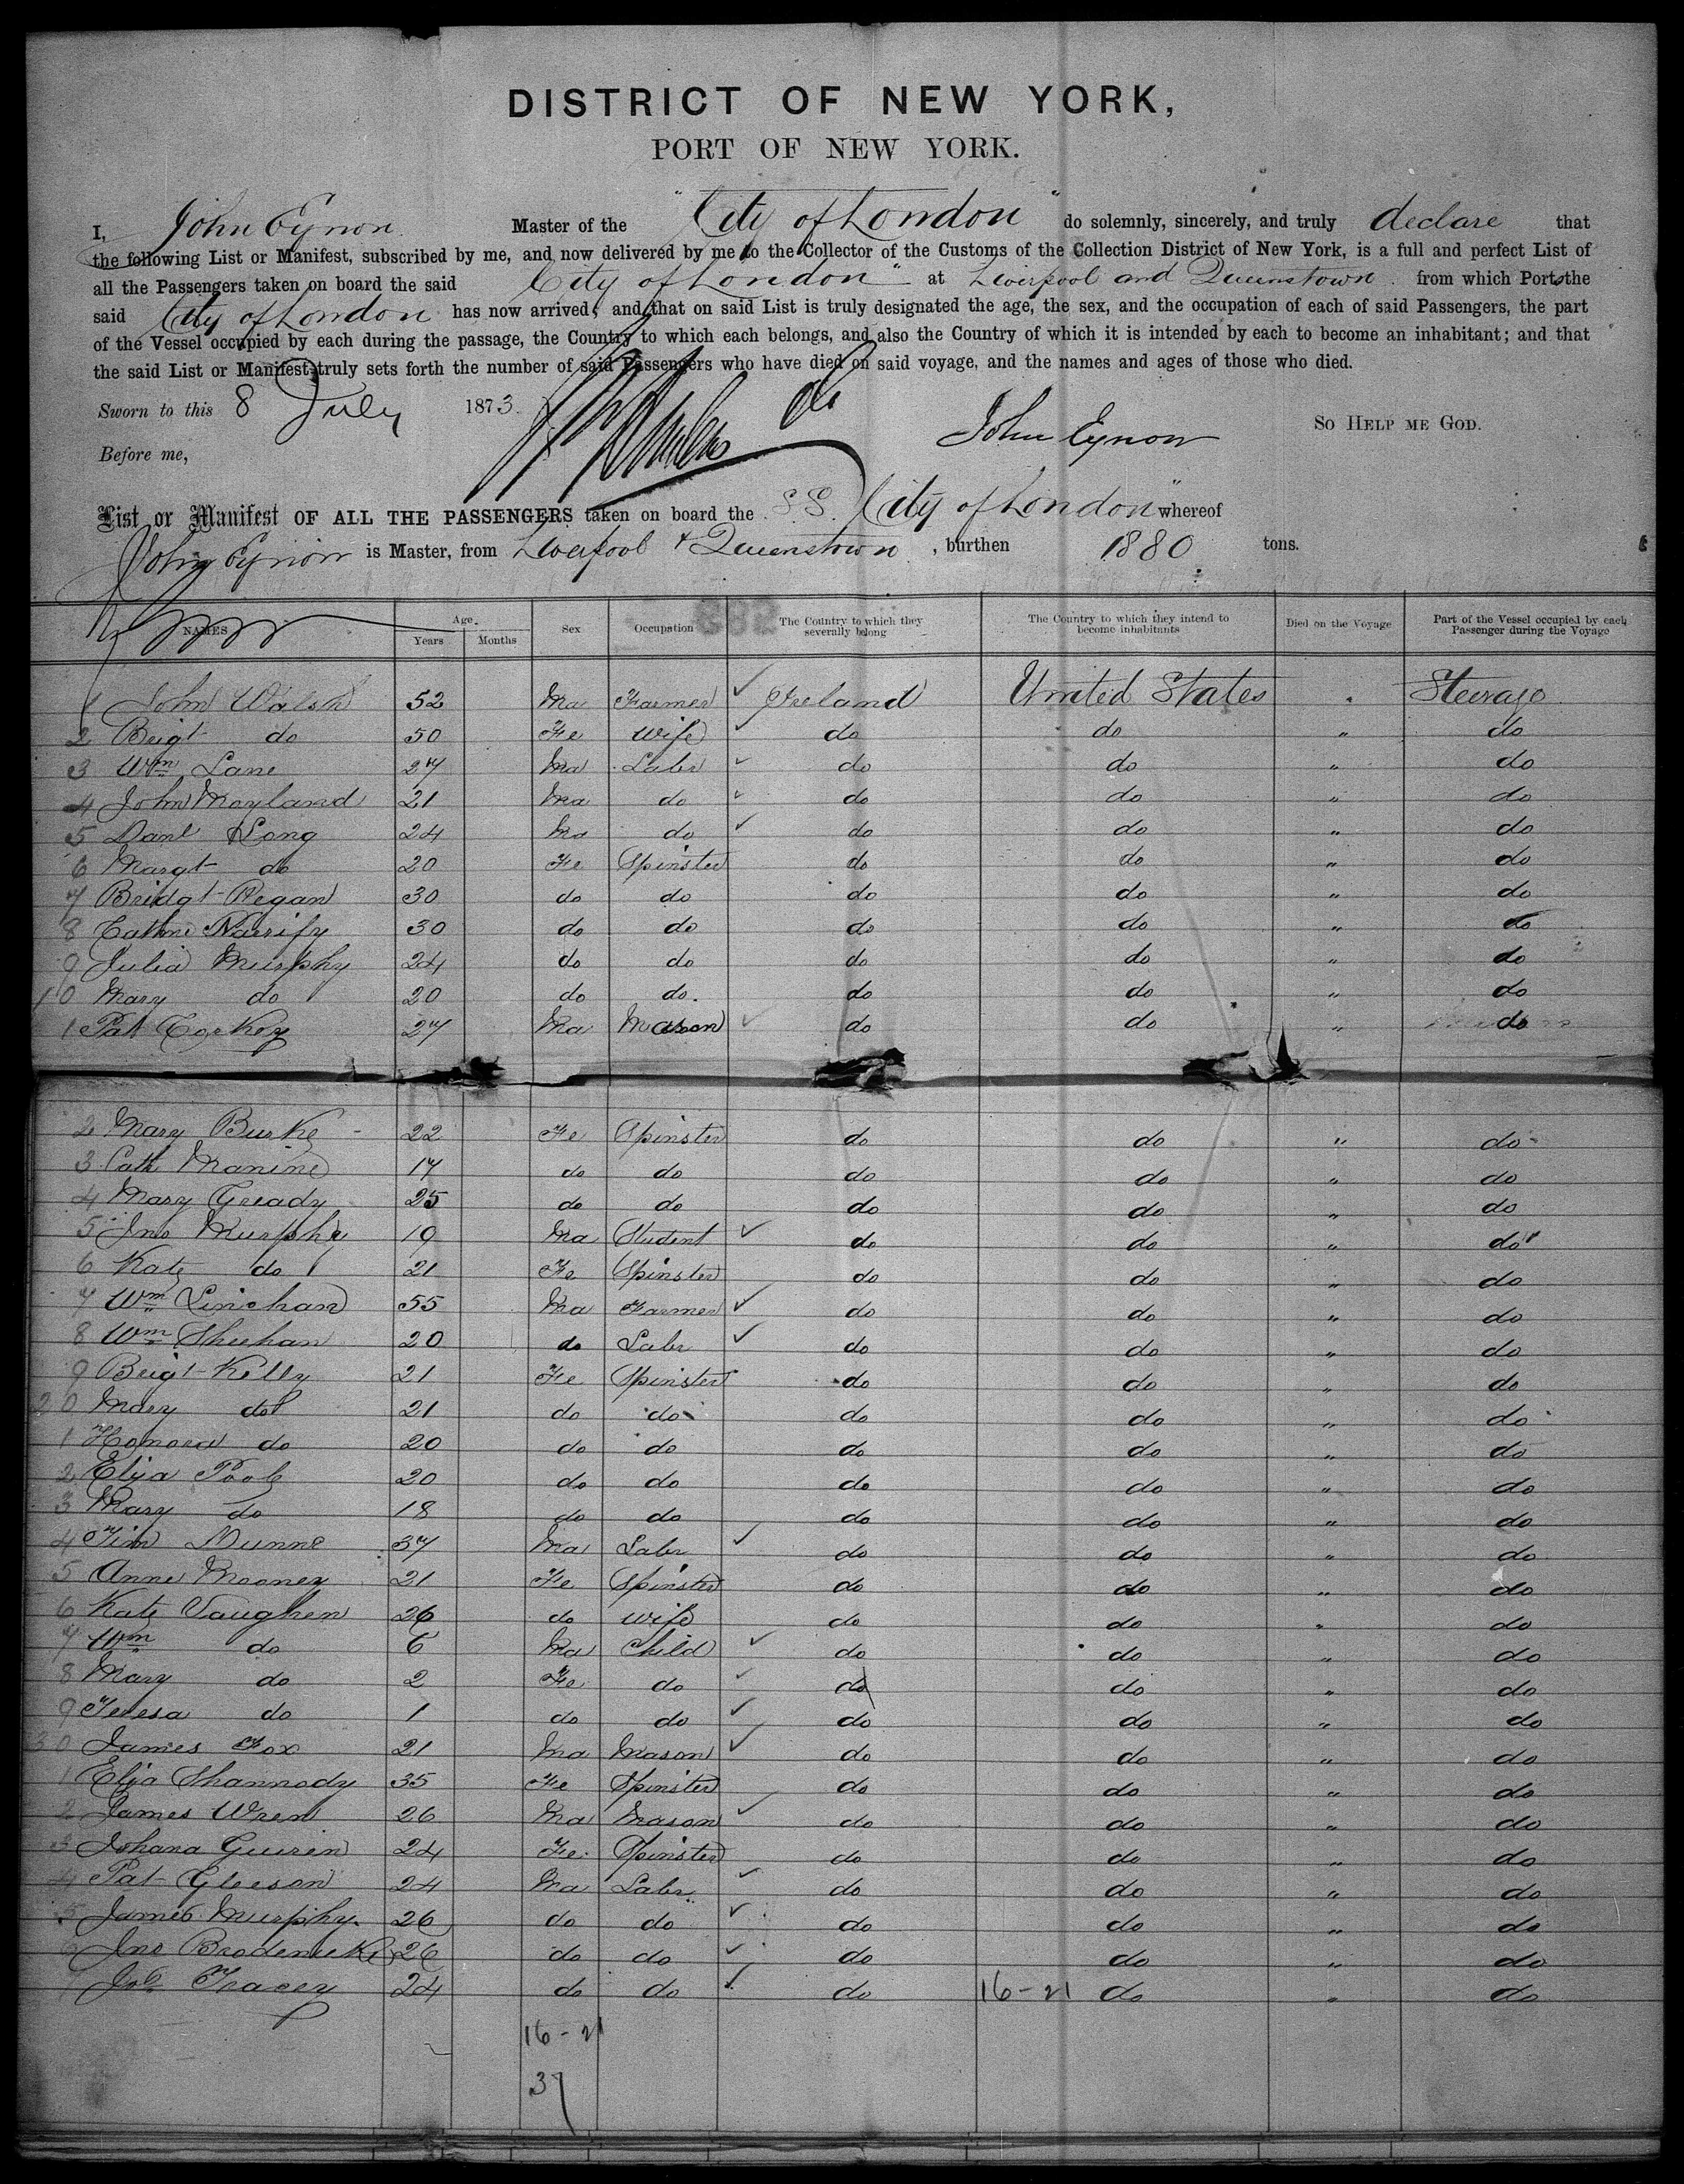 DISTRICT OF NEW YORK,
PORT OF NEW YORK.
I, John Eynon Master of the "City of London" do solemnly, sincerely, and truly declare that
the following List or Manifest, subscribed by me, and now delivered by me to the Collector of the Customs of the Collection District of New York, is a full and perfect List of
all the Passengers taken on board the said City of London" at Liverpool and Queenstown from which Ports the
said City of London has now arrived; and that on said List is truly designated the age, the sex, and the occupation of each of said Passengers, the part
of the Vessel occupied by each during the passage, the Country to which each belongs, and also the Country of which it is intended by each to become an inhabitant; and that
the said List or Manifest truly sets forth the number of said Passengers who have died on said voyage, and the names and ages of those who died.
Sworn to this 8 July 1873. John Eynon SO HELP ME GOD.
Before me,
List or Manifest OF ALL THE PASSENGERS taken on board the SS. "City of London" whereof
John Eynon is Master, from Liverpool & Queenstown, burthen 1880 tons.
NAMES Age. Years Months Sex Occupation The Country to which they severally belong The Country to which they intend to become inhabitants Died on the Voyage Part of the Vessel occupied by each Passenger during the Voyage
1 John Walsh 52 Ma Farmer ✓ Ireland United States " Steerage
2 Beigt do 50 Fe Wife ✓ do do " do
3 Wm Lane 27 Ma Labr ✓ do do " do
4 John Moyland 21 Ma do ✓ do do " do
5 Danl Long 24 Ma do ✓ do do " do
6 Margt do 20 Fe Spinster do do " do
7 Bridgt Regan 30 do do do do " do
8 Cathne 30 do do do do " do
9 Julia Murphy 24 do do do do " do
10 Mary do 20 do do. do do " do
1 Pat Corkey 27 Ma Mason ✓ do do " do
2 Mary Burke 22 Fe Spinster do do " do
3 Cath Manine 17 do do do do " do
4 Mary Gready 25 do do do do " do
5 Jno Murphy 19 Ma Student ✓ do do " do
6 Kate do 21 Fe Spinster do do " do
7 Wm Linehan 55 Ma Farmer ✓ do do " do
8 Wm Sheehan 20 do Labr ✓ do do " do
9 Beigt Kelly 21 Fe Spinster do do " do
20 Mary do 21 do do do do " do
1 Honora do 20 do do do do " do
2 Eliza Poole 20 do do do do " do
3 Mary do 18 do do do do " do
4 Tim Dunne 37 Ma Labr ✓ do do " do
5 Anne Mooney 21 Fe Spinster do do " do
6 Kate Vaughen 26 do Wife do do " do
7 Wm do 6 Ma Child ✓ do do " do
8 Mary do 2 Fe do ✓ do do " do
9 Teresa do 1 do do ✓ do do " do
30 James Fox 21 Ma Mason ✓ do do " do
1 Eliza Shannody 35 Fe Spinster do do " do
2 James Wren 26 Ma Mason ✓ do do " do
3 Johana Guirin 24 Fe Spinster do do " do
4 Pat Gleeson 24 Ma Labr ✓ do do " do
5 James Murphy. 26 do do ✓ do do " do
6 Jno Brodericke 26 do do ✓ do do " do
7 Tracey 24 do do ✓ do 16-21 do " do
16-21
37